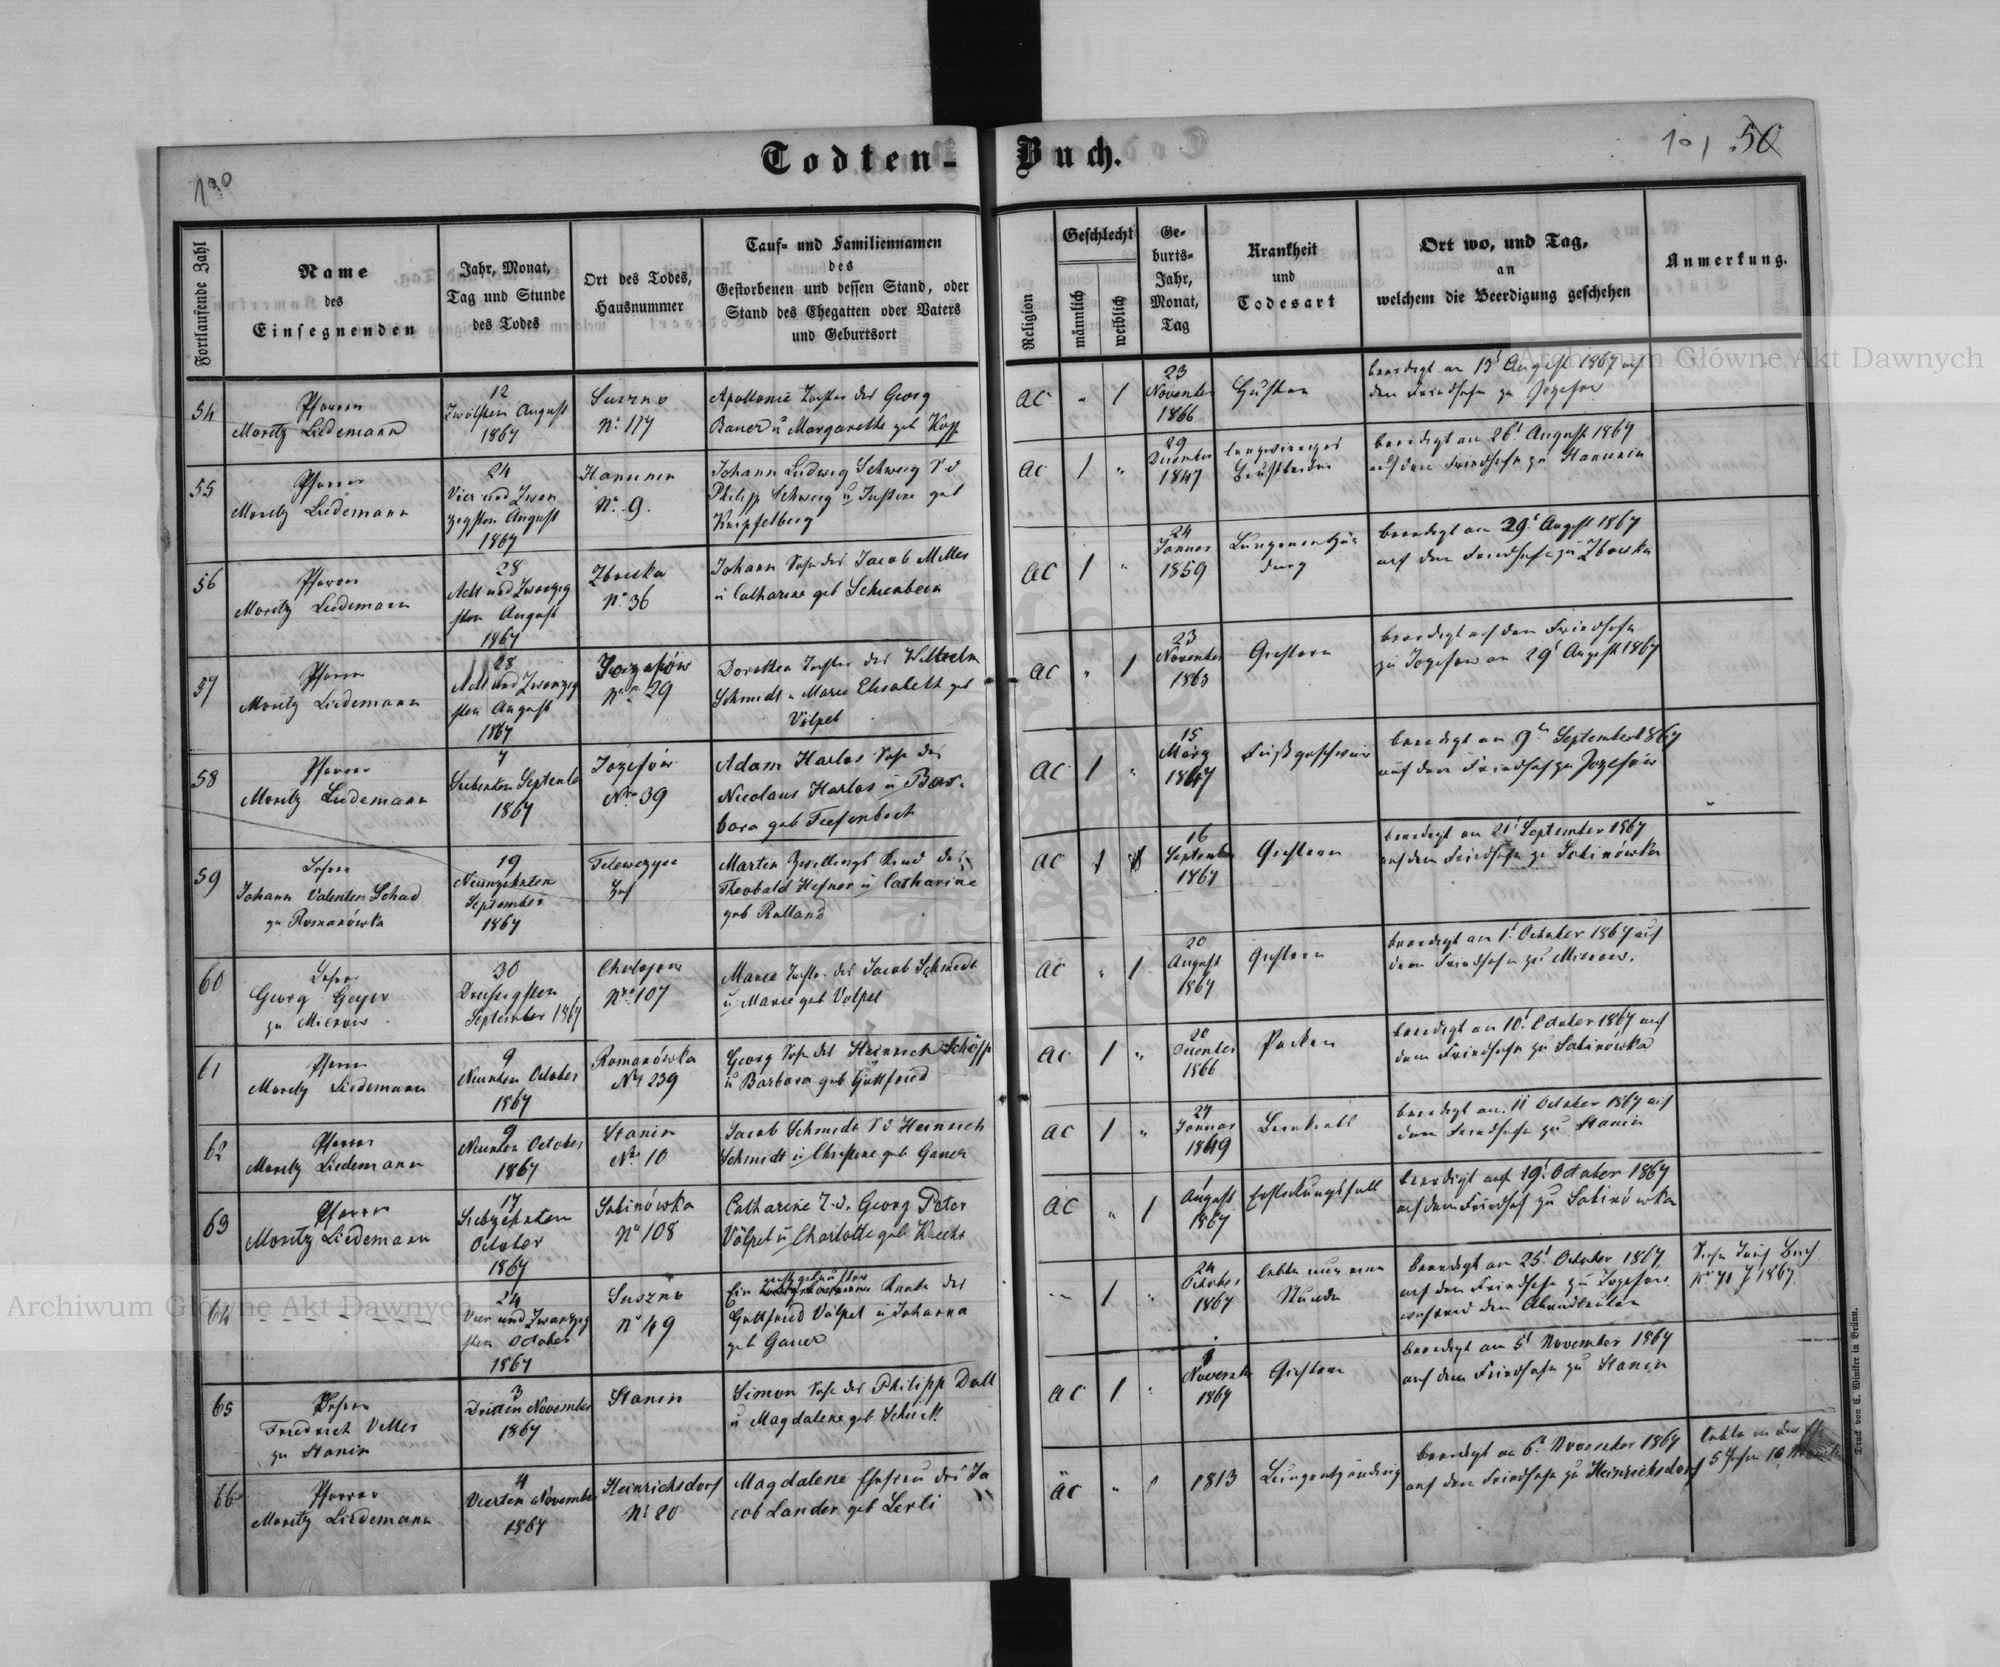 Todten-
Buch.
100
101 50
Fortlaufende Zahl
Name
des
Einsegnenden
Jahr, Monat,
Tag und Stunde
des Todes
Ort des Todes,
Hausnummer
Tauf- und Familiennamen
des
Gestorbenen und dessen Stand, oder
Stand des Ehegatten oder Vaters
und Geburtsort
Religion
Geschlecht
männlich
weiblich
Ge-
burts-
Jahr,
Monat,
Tag
Krankheit
und
Todesart
Ort wo, und Tag,
an
welchem die Beerdigung geschehen
Anmerkung.
54
Pfarrer
Moritz Liedemann
12
Zwölften August
1867
Suszno
No 177
Apollonia Tochter des Georg
Bauer u Margarethe geb Kopp
AC " 1
23
November
1866
Husten
beerdigt am 13t August 1867 auf
dem Friedhofe zu Jozefow
55
Pfarrer
Moritz Liedemann
24
Vier und Zwan
zigsten August
1867
Hanunin
No 9.
Johann Ludwig Schweig S d
Philipp Schweig u Justine geb
Knipfelberg
AC 1 "
29
December
1847
langwieriges
Brustleiden
beerdigt am 26t August 1867
auf dem Friedhofe zu Hanunin
56
Pfarrer
Moritz Liedemann
28
Acht und Zwanzig
sten August
1867
Zboiska
No 36
Johann Sohn des Jacob Miller
u Catharine geb Schienbein
AC 1 "
24
Januar
1859
Lungenentzün
dung
beerdigt am 29t August 1867
auf dem Friedhofe zu Zboiska
57
Pfarrer
Moritz Liedemann
28
Acht und Zwanzig
sten August
1867
Jozefów
No 29
Dorothea Tochter des Wilhelm
Schmidt u Marie Elisabeth geb
Völpel
AC " 1
23
November
1863
Gichtern
beerdigt auf dem Friedhofe
zu Jozefow am 29t August 1867
58
Pfarrer
Moritz Liedemann
7
Siebenten September
1867
Jozefów
Nro 39
Adam Harlos Sohn des
Nicolaus Harlos u Bar-
bara geb Tiefenbach
AC 1 "
15
März
1847
Fußgeschwür
beerdigt am 9ten September 1867
auf dem Friedhof zu Jozefów
59
Lehrer
Johann Valentin Schad
zu Romanówka
19
Neunzehnten
September
1867
Tetewczyce
Hof
Martin Zwillings Kind des
Theobald Hefner u Catharine
geb Rolland
AC 1
16
September
1867
Gichtern
beerdigt am 21t September 1867
auf dem Friedhofe zu Sabinówka
60
Lehrer
Georg Geyer
zu Mierow
30
Dreißigsten
September 1867
Cholojow
Nro 107
Marie Tochter des Jacob Schmidt
u Marie geb Völpel
AC " 1
20
August
1867
Gichtern
beerdigt am 1t October 1867 auf
dem Friedhofe zu Mierow.
61
Pfarrer
Moritz Liedemann
9
Neunten October
1867
Romanówka
No 239
Georg Sohn des Heinrich Schöpp
u Barbara geb Gottfried
AC 1 "
20
December
1866
Pocken
beerdigt am 10t October 1867 auf
dem Friedhofe zu Sabinówka
62
Pfarrer
Moritz Liedemann
9
Neunten October
1867
Stanin
Nro 10
Jacob Schmidt S d Heinrich
Schmidt u Christine geb Gauer
AC 1 "
27
Januar
1849
beerdigt am 11 October 1867 auf
dem Friedhofe zu Stanin
63
Pfarrer
Moritz Liedemann
17
Siebzehnten
October
1867
Sabinówka
No 108
Catharine T. d. Georg Peter
Völpel u Charlotte geb Knecht
AC " 1
1
August
1867
Erstickungsfall
beerdigt auf 19t October 1867
auf dem Friedhof zu Sabinówka
64
24
Vier und Zwanzig
sten October
1867
Suszno
No 49
Ein nothgetaufter Knabe des
Gottfried Völpel u Johanna
geb Gauer
1 "
24
October
1867
lebte nur eine
Stunde
beerdigt am 25t October 1867,
auf dem Friedhofe zu Jozefow
während dem Abendläuten
Siehe Tauf Buch
Nro 71 J 1867.
65
Lehrer
Friedrich Veller
zu Stanin
3
Dritten November
1867
Stanin
Simon Sohn des Philipp Doll
u Magdalene geb Schick
AC 1 "
1
November
1867
Gichtern
beerdigt am 5t November 1867
auf dem Friedhofe zu Stanin
66
Pfarrer
Moritz Liedemann
4
Vierten November
1867
Heinrichsdorf
No 20
Magdalene Ehefrau des Ja
cob Lander geb Lerli
AC " 1
1813
Lungenentzündung
beerdigt am 6t November 1867
auf dem Friedhofe zu Heinrichsdorf
lebte in der Ehe
5 Jahre 10 Monate
Druck von C. Winiker in Brünn.
Archiwum Główne Akt Dawnych
Archiwum Główne Akt Dawnych